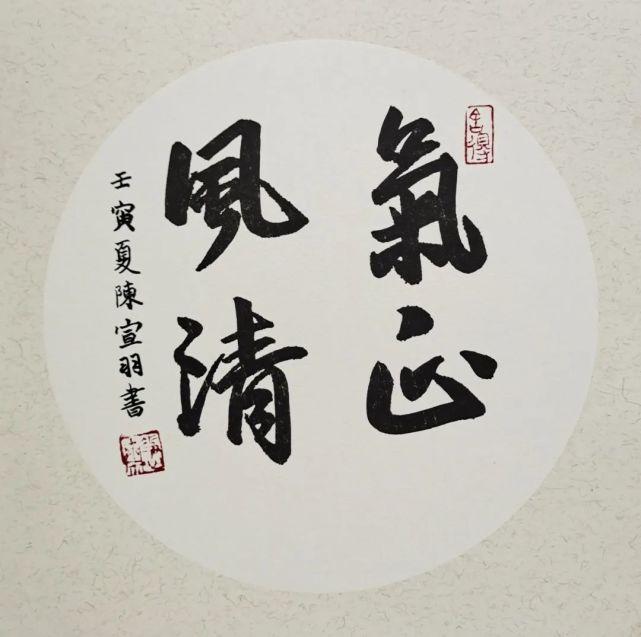 氣正
風清
壬寅夏陳宣羽書